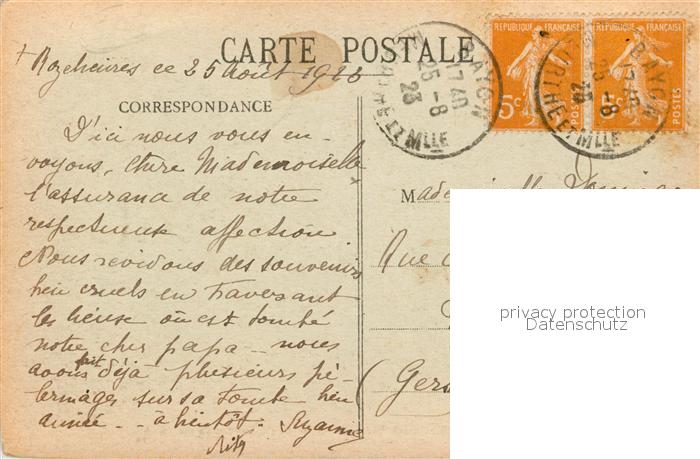 CARTE POSTALE
Rozelieures ce 25 août 1923
CORRESPONDANCE
D'ici nous vous en-
voyons, chère Mademoiselle
l'assurance de notre
respectueuse affection
Nous revivons des souvenirs
bien cruels en traversant
les lieux où est tombé
notre cher papa -- nous
avons fait déjà plusieurs pè-
lerinages sur sa tombe
année -- à bientôt. Suzanne
Rita
REPUBLIQUE FRANÇAISE
5c POSTES
REPUBLIQUE FRANÇAISE
5c POSTES
BAYON
17 40
25-8
23
MTHE ET MLLE
BAYON
17 40
25-8
23
MEURTHE ET MLLE
Rue
(Gers
privacy protection
Datenschutz